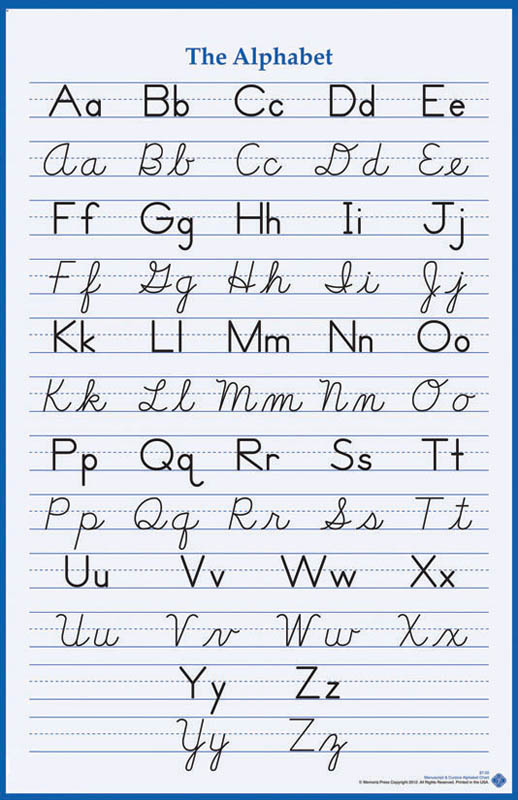 The Alphabet
Aa Bb Cc Dd Ee
Aa Bb Cc Dd Ee
Ff Gg Hh Ii Jj
Ff Gg Hh Ii Jj
Kk Ll Mm Nn Oo
Kk Ll Mm Nn Oo
Pp Qq Rr Ss Tt
Pp Qq Rr Ss Tt
Uu Vv Ww Xx
Uu Vv Ww Xx
Yy Zz
Yy Zz
Manuscript & Cursive Alphabet Chart
© Memoria Press Copyright 2012. All Rights Reserved. Printed in the USA.